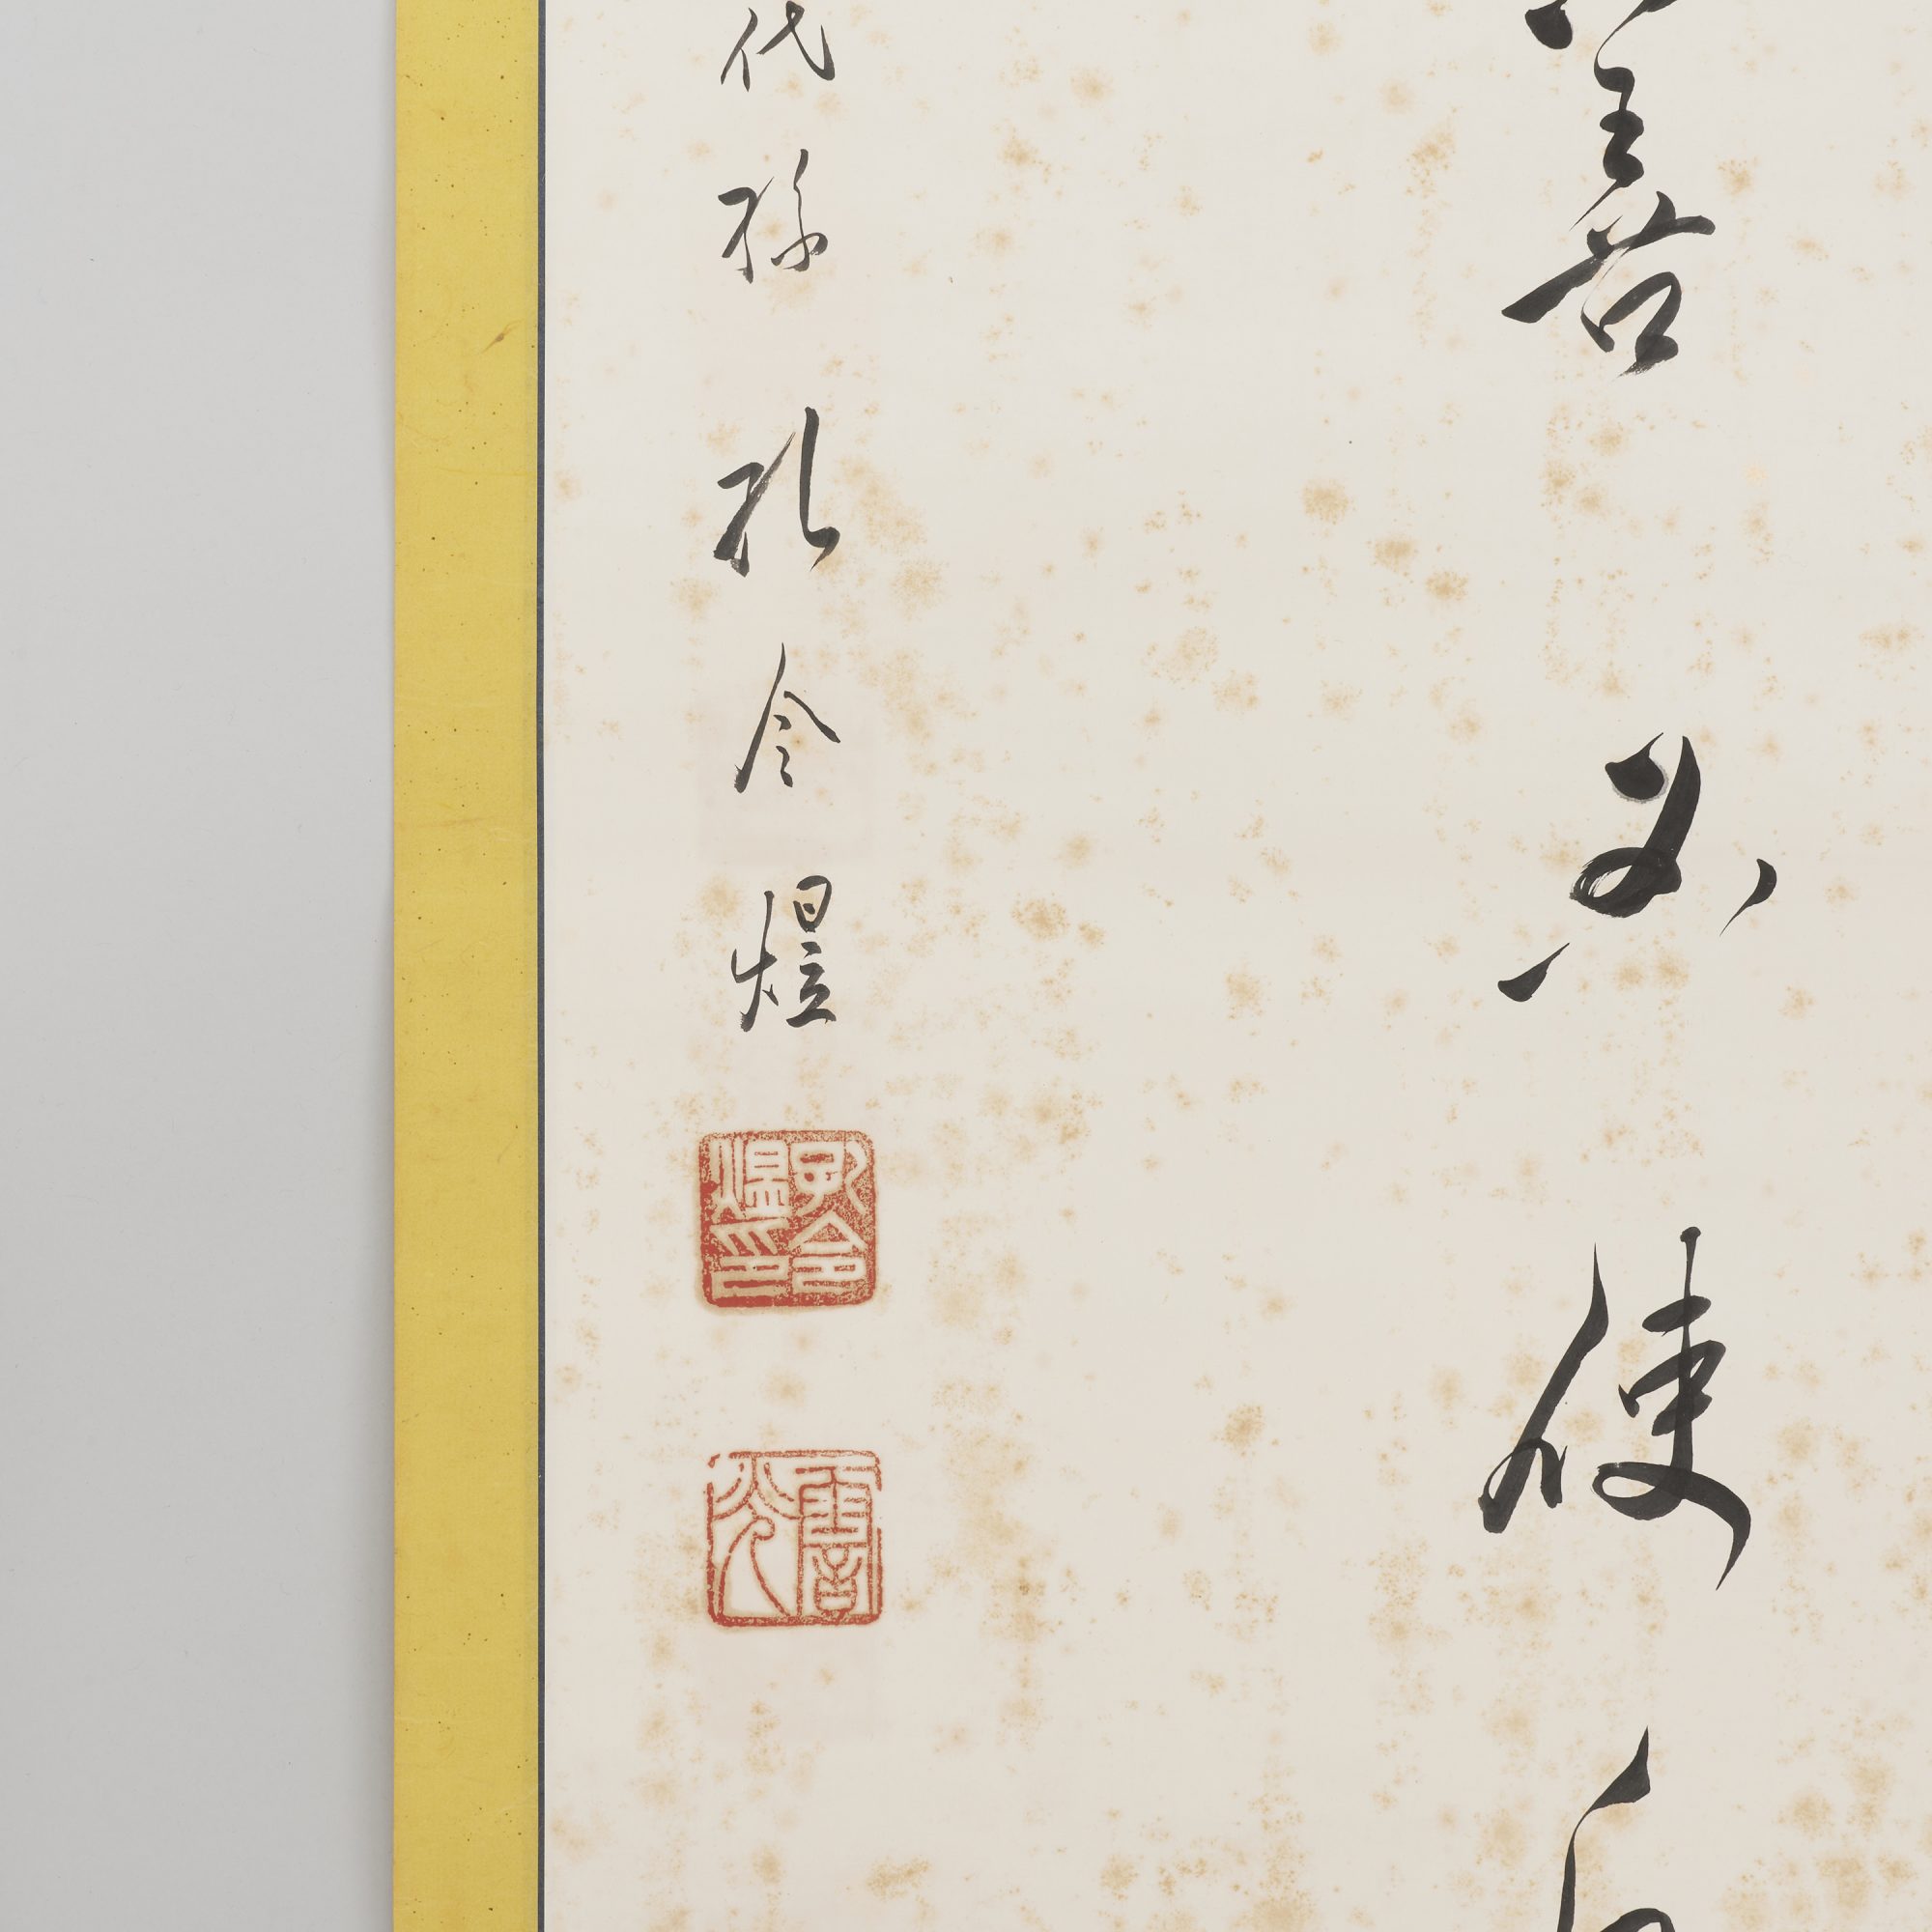 善必使
代孫孔令煜
孔令煜印